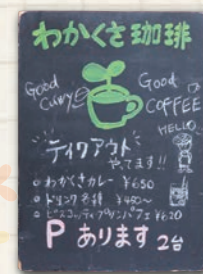 わかくさ珈琲
Good Curry
Good COFFEE
HELLO
テイクアウト
やってます!!
わかくさカレー ¥650
ドリンク各種 ¥450~
ビスコッティプリンパフェ ¥620
P あります 2台